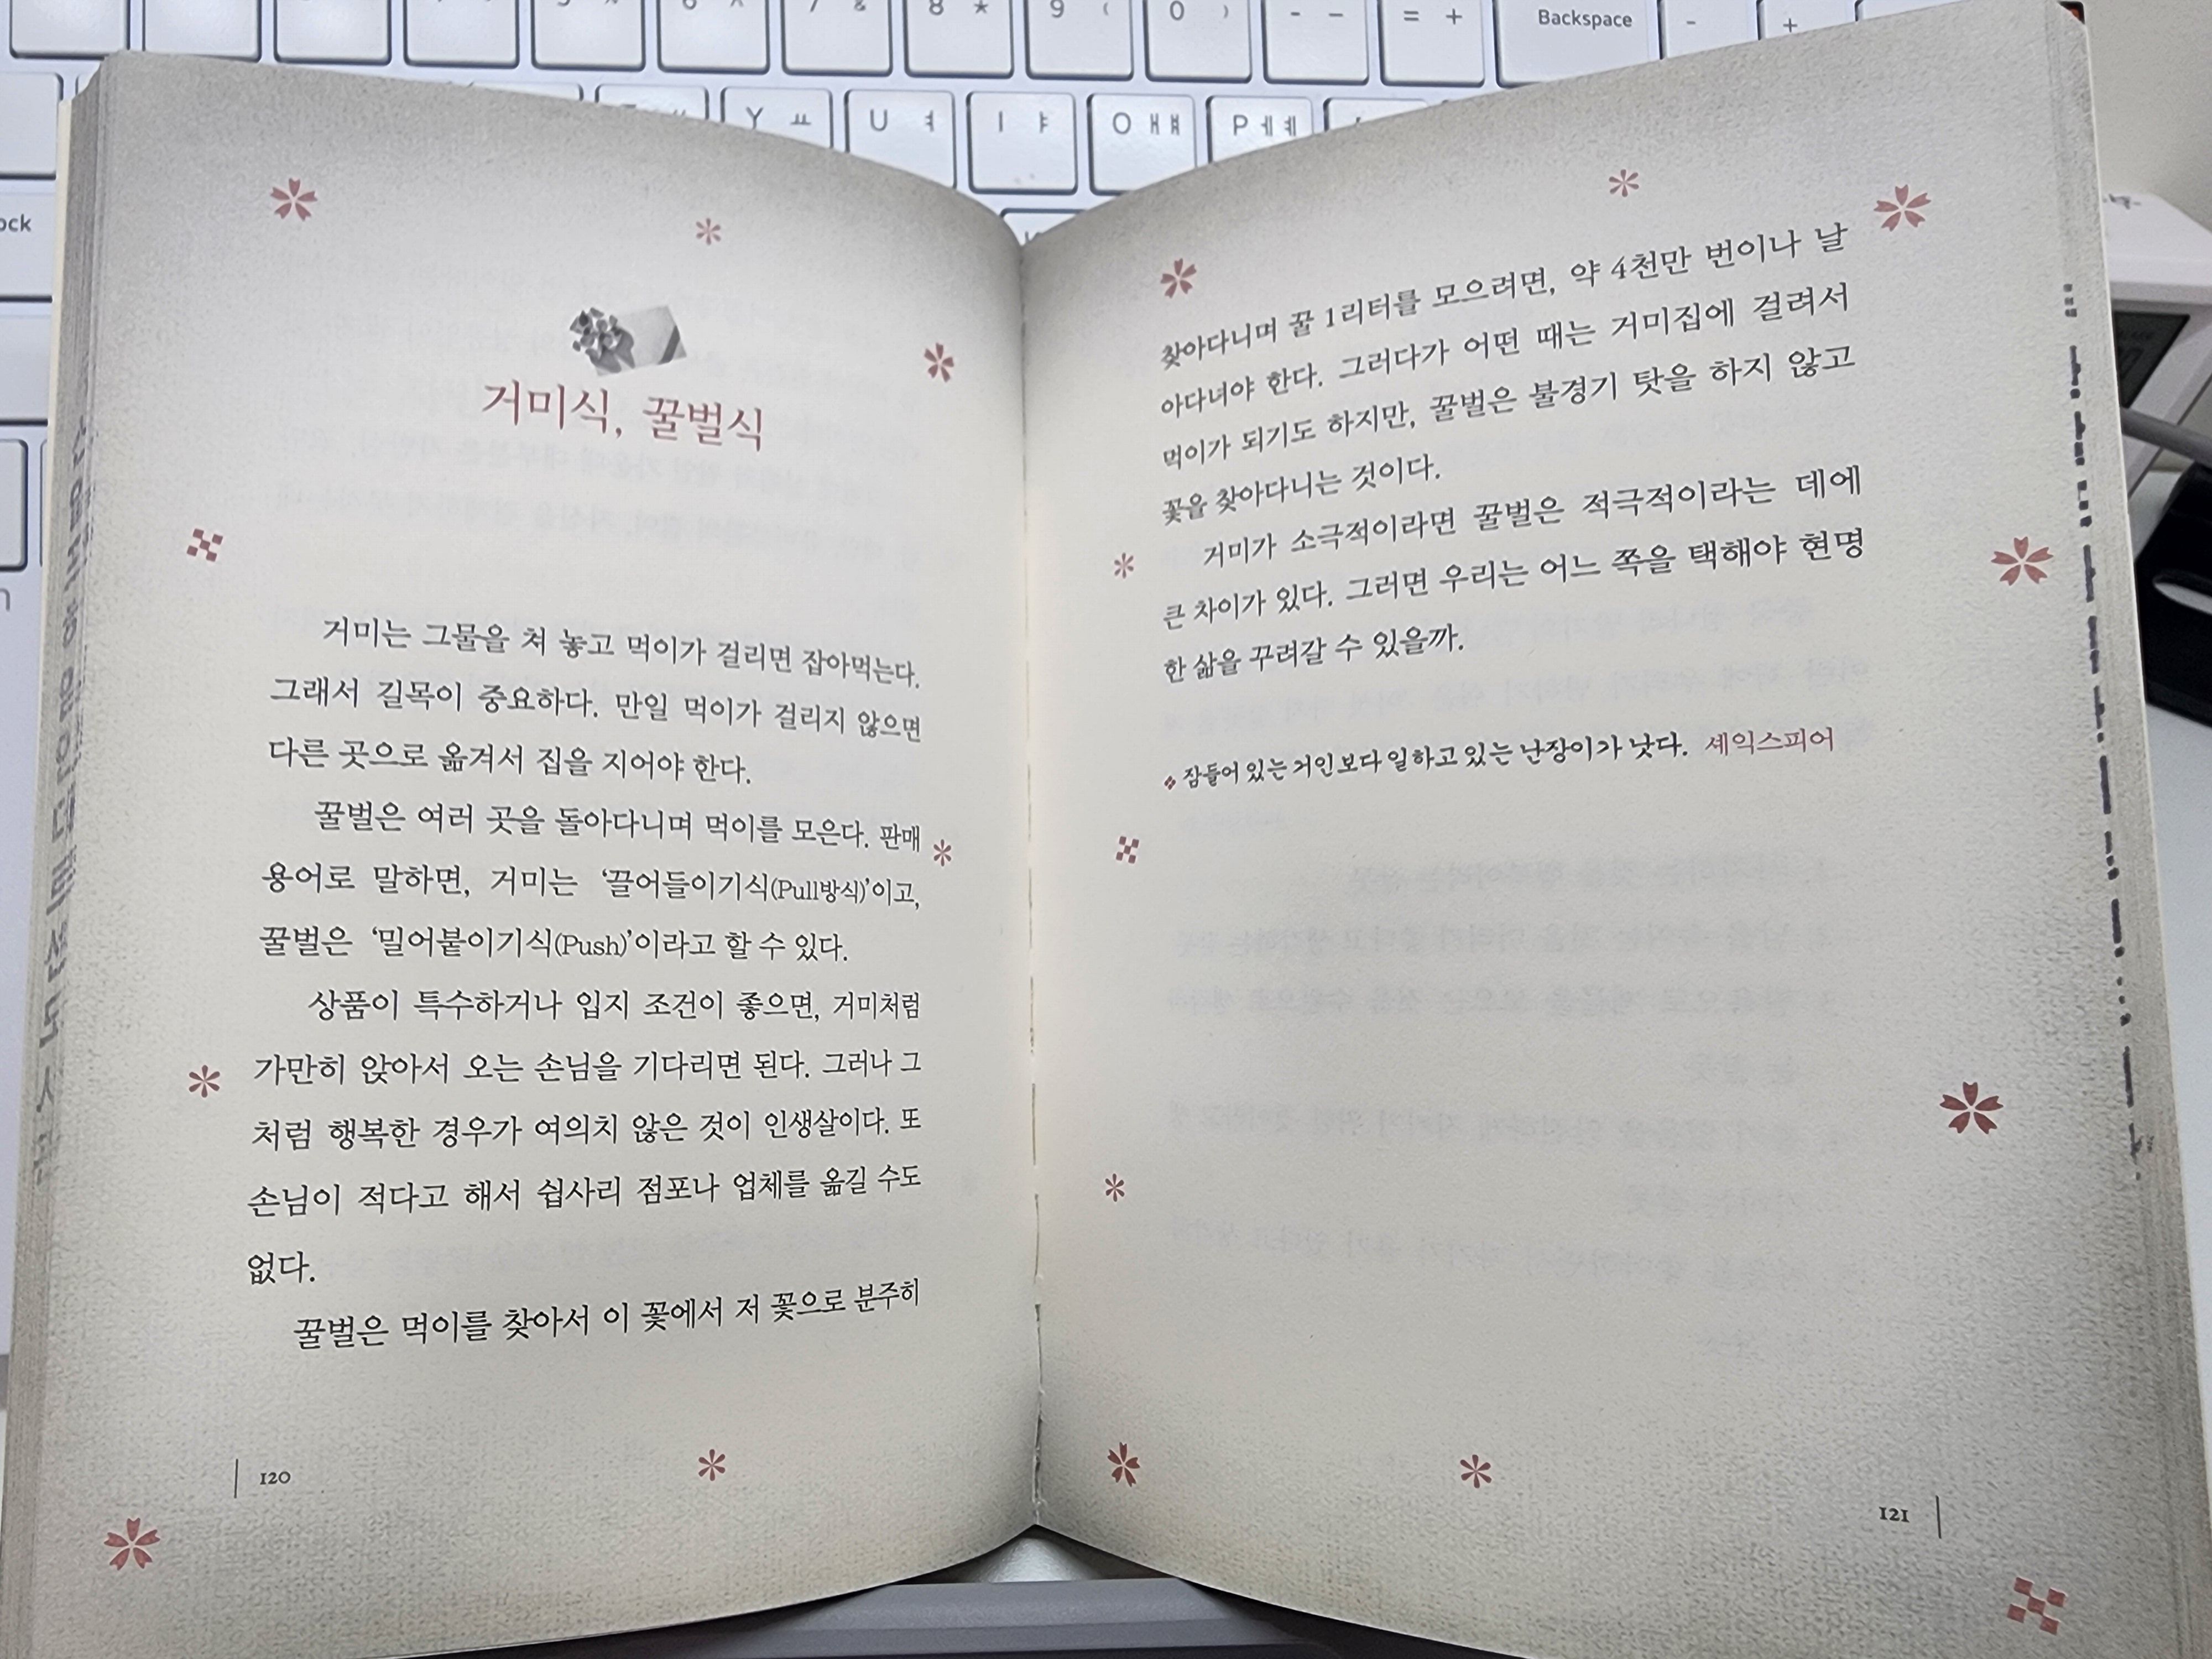 Backspace
거미식, 꿀벌식
거미는 그물을 쳐 놓고 먹이가 걸리면 잡아먹는다.
그래서 길목이 중요하다. 만일 먹이가 걸리지 않으면
다른 곳으로 옮겨서 집을 지어야 한다.
꿀벌은 여러 곳을 돌아다니며 먹이를 모은다. 판매
용어로 말하면, 거미는 ‘끌어들이기식(Pull방식)’이고,
꿀벌은 ‘밀어붙이기식(Push)’이라고 할 수 있다.
상품이 특수하거나 입지 조건이 좋으면, 거미처럼
가만히 앉아서 오는 손님을 기다리면 된다. 그러나 그
처럼 행복한 경우가 여의치 않은 것이 인생살이다. 또
손님이 적다고 해서 쉽사리 점포나 업체를 옮길 수도
없다.
꿀벌은 먹이를 찾아서 이 꽃에서 저 꽃으로 분주히
120
찾아다니며 꿀 1리터를 모으려면, 약 4천만 번이나 날
아다녀야 한다. 그러다가 어떤 때는 거미집에 걸려서
먹이가 되기도 하지만, 꿀벌은 불경기 탓을 하지 않고
꽃을 찾아다니는 것이다.
거미가 소극적이라면 꿀벌은 적극적이라는 데에
큰 차이가 있다. 그러면 우리는 어느 쪽을 택해야 현명
한 삶을 꾸려갈 수 있을까.
잠들어 있는 거인보다 일하고 있는 난장이가 낫다. 셰익스피어
121